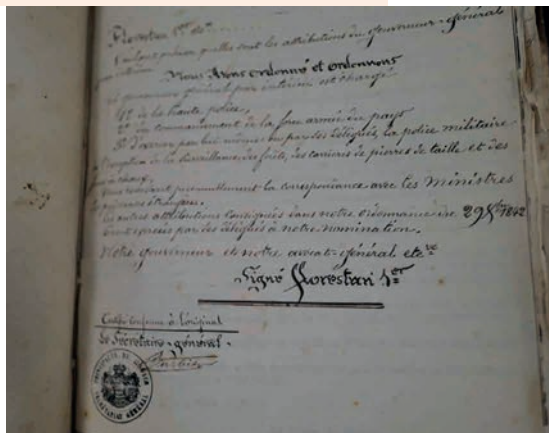 Florestan 1er etc.
Voulant préciser quelles sont les attributions du gouverneur-général
par intérim
Nous Avons ordonné et ordonnons
Le gouverneur général par intérim est chargé
1º de la haute police,
2º du commandement de la force armée du pays
3º D'exercer par lui même ou par ses délégués, la police militaire
à l'exception de la surveillance des forêts, des carrières de pierres de taille et des
fours à chaux.
Nous réservant personnellement la correspondance avec les Ministres
des puissances étrangères.
Les autres attributions consignées dans notre ordonnance du 29 1842
seront exercées par des délégués à notre nomination.
Notre gouverneur et notre avocat-général etc.
Signé Florestan 1er
Certifié conforme à l'original
Le Secrétaire-général.
SECRÉTARIAT GÉNÉRAL